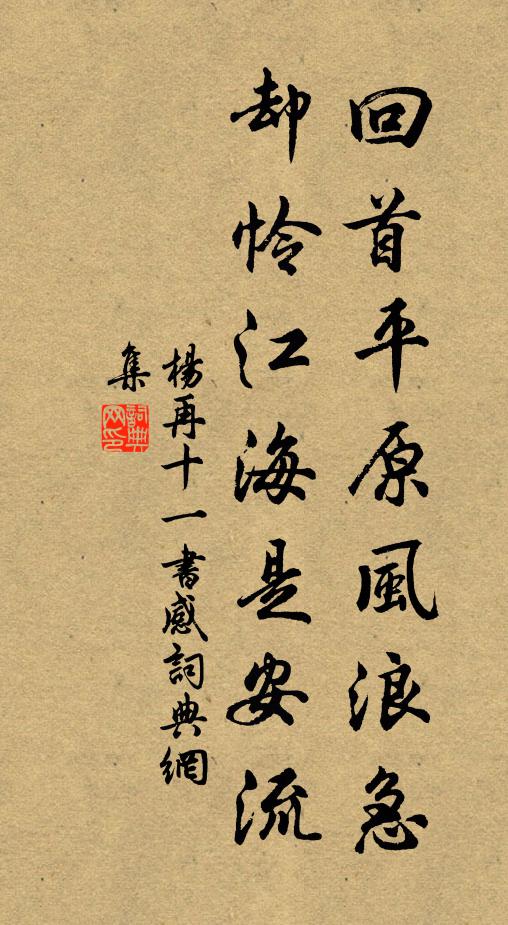 回首平原風浪急
却怜江海是安流
楊再十一書感詞典網
集
詞典
网印